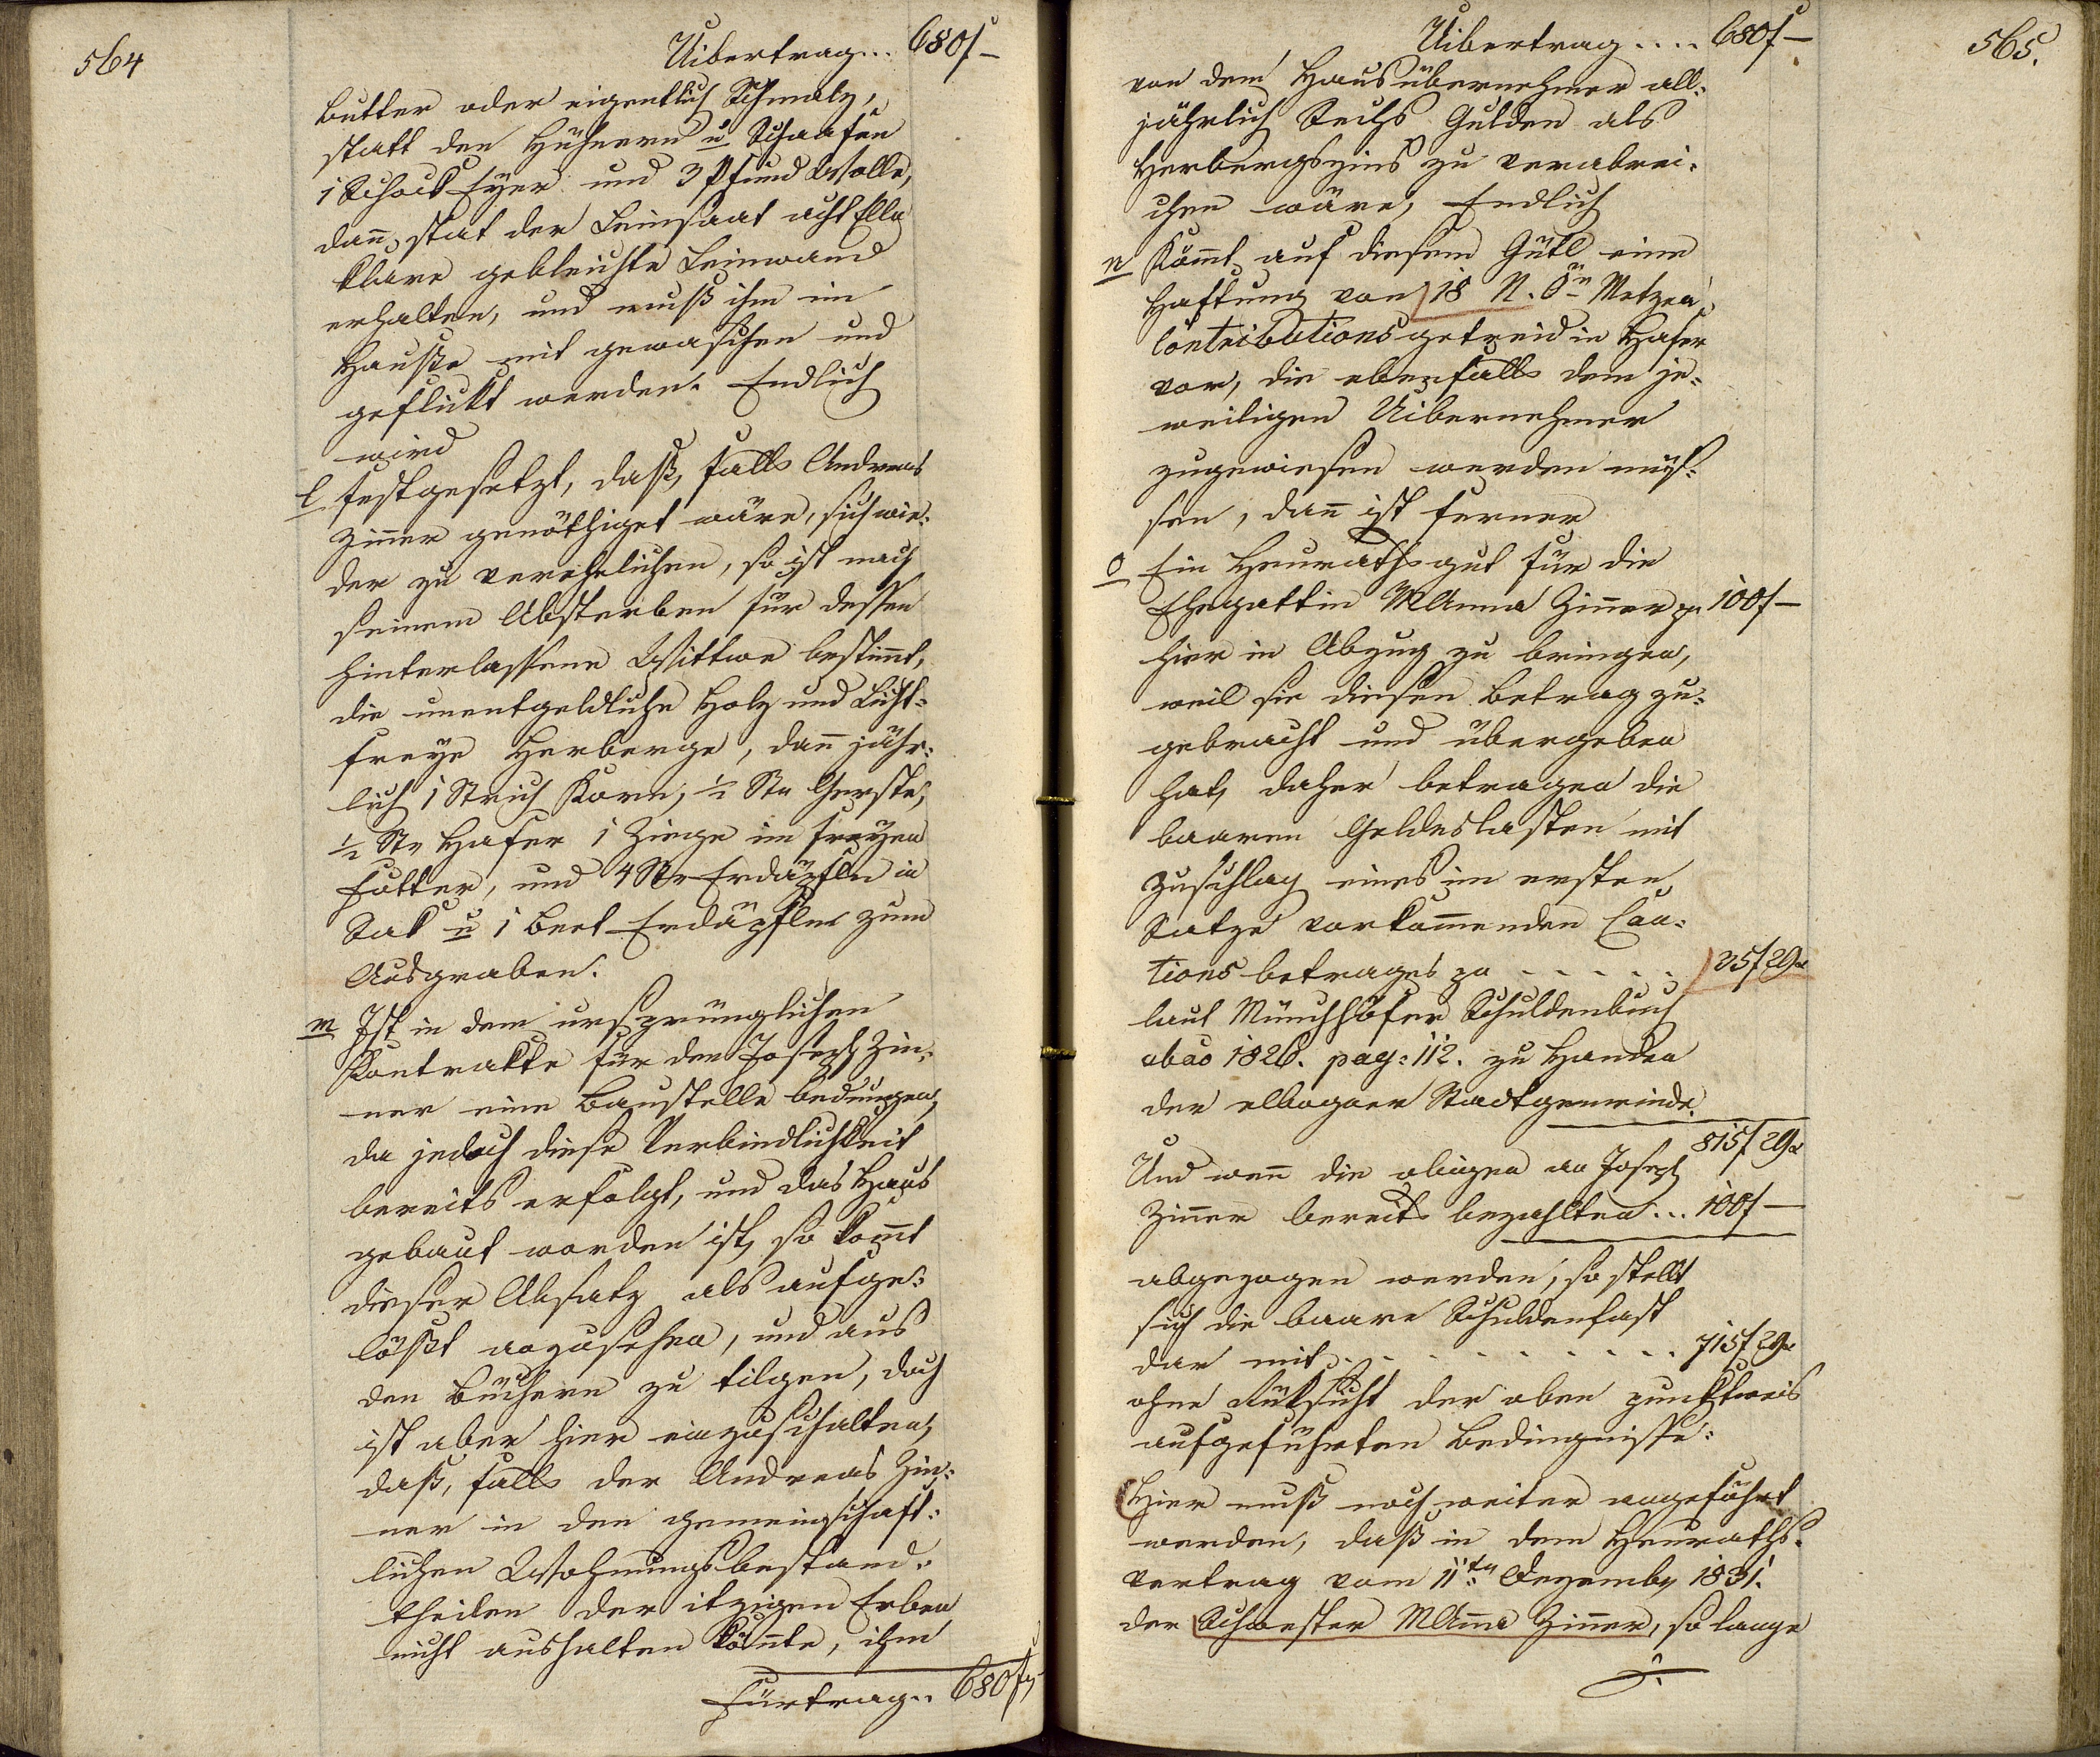 564
Uibertrag... 680f–
butter oder eigentlich Schmalz,
statt den Hühnern u Schaafen
1 Schock Eyer und 3 Pfund Wolle,
dañ, stat der Leinsaat acht Elln
klare gebleichte Leinwand
erhalten, und muß ihm im
Hauße mit gewaschen und
geflickt werden. Endlich
wird
l festgesetzt, daß, falls Andreas
Ziñer genöthiget wäre, sich wie:
der zu verehelichen, so ist nach
seinem Absterben für dessen
hinterlassene Wittwe bestim̃t,
die unentgeldliche Holz und Licht:
freye Herberge, dañ jähr:
lich 1 Strich Korn, ½ Str Gerste,
½ Str Hafer 1 Ziege im freyen
Futter, und 4 Str Erdäpfeln in
Sak u 1 Beet Erdäpfeln zum
Ausgraben.
m Ist in dem ursprünglichen
Kontrakte für den Joseph Zin:
ner eine Baustelle bedungen,
da jedoch diese Verbindlichkeit
bereits erfolgt, und das Haus
gebaut worden ist, so kom̃t
dieser Absatz als aufge:
lößt anzusehen, und aus
den Büchern zu tilgen, doch
ist aber hier einzuschalten,
daß, falls der Andreas Zin:
ner in den gemeinschaft:
lichen Wohnungsbestand:
theilen der itzigen Erben
nicht aushalten könnte, ihm
Fürtrag.. 680f
565.
Uibertrag.... 680f–
von dem Hausübernehmer all:
jährlich Sechs Gulden als
Herbergszins zu verabrei:
chen wäre, Endlich
n Köm̃t auf diesem Gütl eine
Haftung von 18 N. Ön Metzen
Contributionsgetreid in Hafer
vor, die ebenfalls dem je:
weiligen Uibernehmer
zugewiesen werden müs:
sen, dañ ist ferner
o Ein Heurathsgut für die
Ehegattin MAnna Ziñer pr 100f–
hier in Abzug zu bringen,
weil sie diesen Betrag zu:
gebracht und übergeben
hat, daher betragen die
baaren Geldeslasten mit
Zuschlag eines im ersten
Satze vorkom̃enden Cau:
tions betrages pr - - - - - 35f 29x
laut Münchhöfer Schuldenbuch
abao 1826. pag: 112. zu Handen
der elbogner Stadtgemeinde.
815f 29x
Und weñ die obigen an Joseph
Ziñer bereits bezahlten... 100f–
abgezogen werden, so stellt
sich die baare Schuldenlast
dar mit - - - - - - - 715f 29x
ohne Rüksicht der oben punktweis
aufgeführten Bedingnisse:
Hier muß noch weiter angeführt
werden, daß in dem Heuraths:
vertrag vom 11ten Dezember 1831.
der Schwester MAña Ziñer, so lange